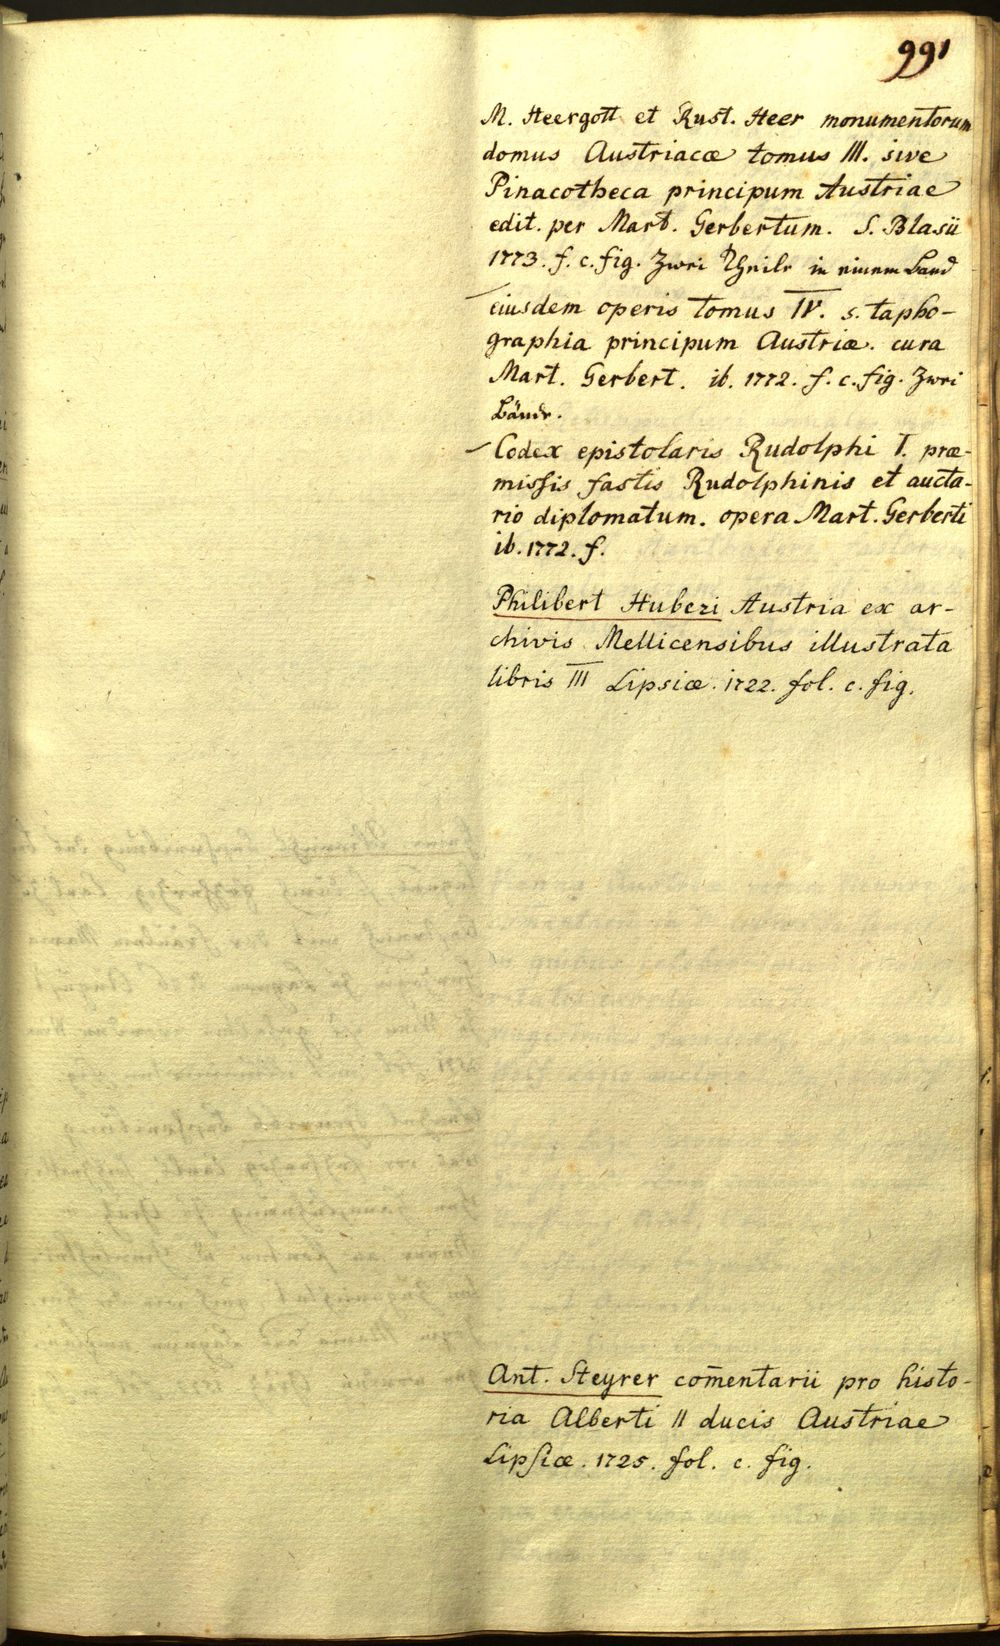 991
M. Heergott et Rust. Heer monumentorum
domus Austriacæ tomus III. sive
Pinacotheca principum Austriae
edit. per Mart. Gerbertum. S. Blasii
1773. f. c. fig. Zwei Theile in einem Band
eiusdem operis tomus IV. s. tapho-
graphia principum Austriæ. cura
Mart. Gerbert. ib. 1772. f. c. fig. Zwei
Bände.
Codex epistolaris Rudolphi I. præ-
missis fastis Rudolphinis et aucta-
rio diplomatum. opera Mart. Gerberti
ib. 1772. f.
Philibert Huberi Austria ex ar-
chivis Mellicensibus illustrata
libris III Lipsiæ. 1722. fol. c. fig.
Ant. Steyrer com̄entarii pro histo-
ria Alberti II ducis Austriae
Lipsiæ. 1725. fol. c. fig.